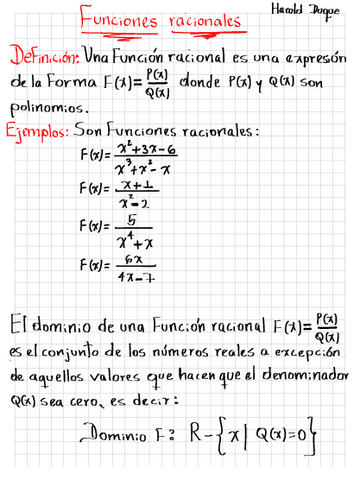 Harold Duque
Funciones racionales
Definición: Una Función racional es una expresión
de la Forma F(x)= P(x)/Q(x) donde P(x) y Q(x) son
polinomios.
Ejemplos: Son Funciones racionales:
F(x)= x²+3x-6/x³+x²-x
F(x)= x+1/x²-2
F(x)= 5/x⁴+x
F(x)= 6x/4x-7
El dominio de una Función racional F(x)= P(x)/Q(x)
es el conjunto de los números reales a excepción
de aquellos valores que hacen que el denominador
Q(x) sea cero, es decir:
Dominio F: R-{x| Q(x)=0}